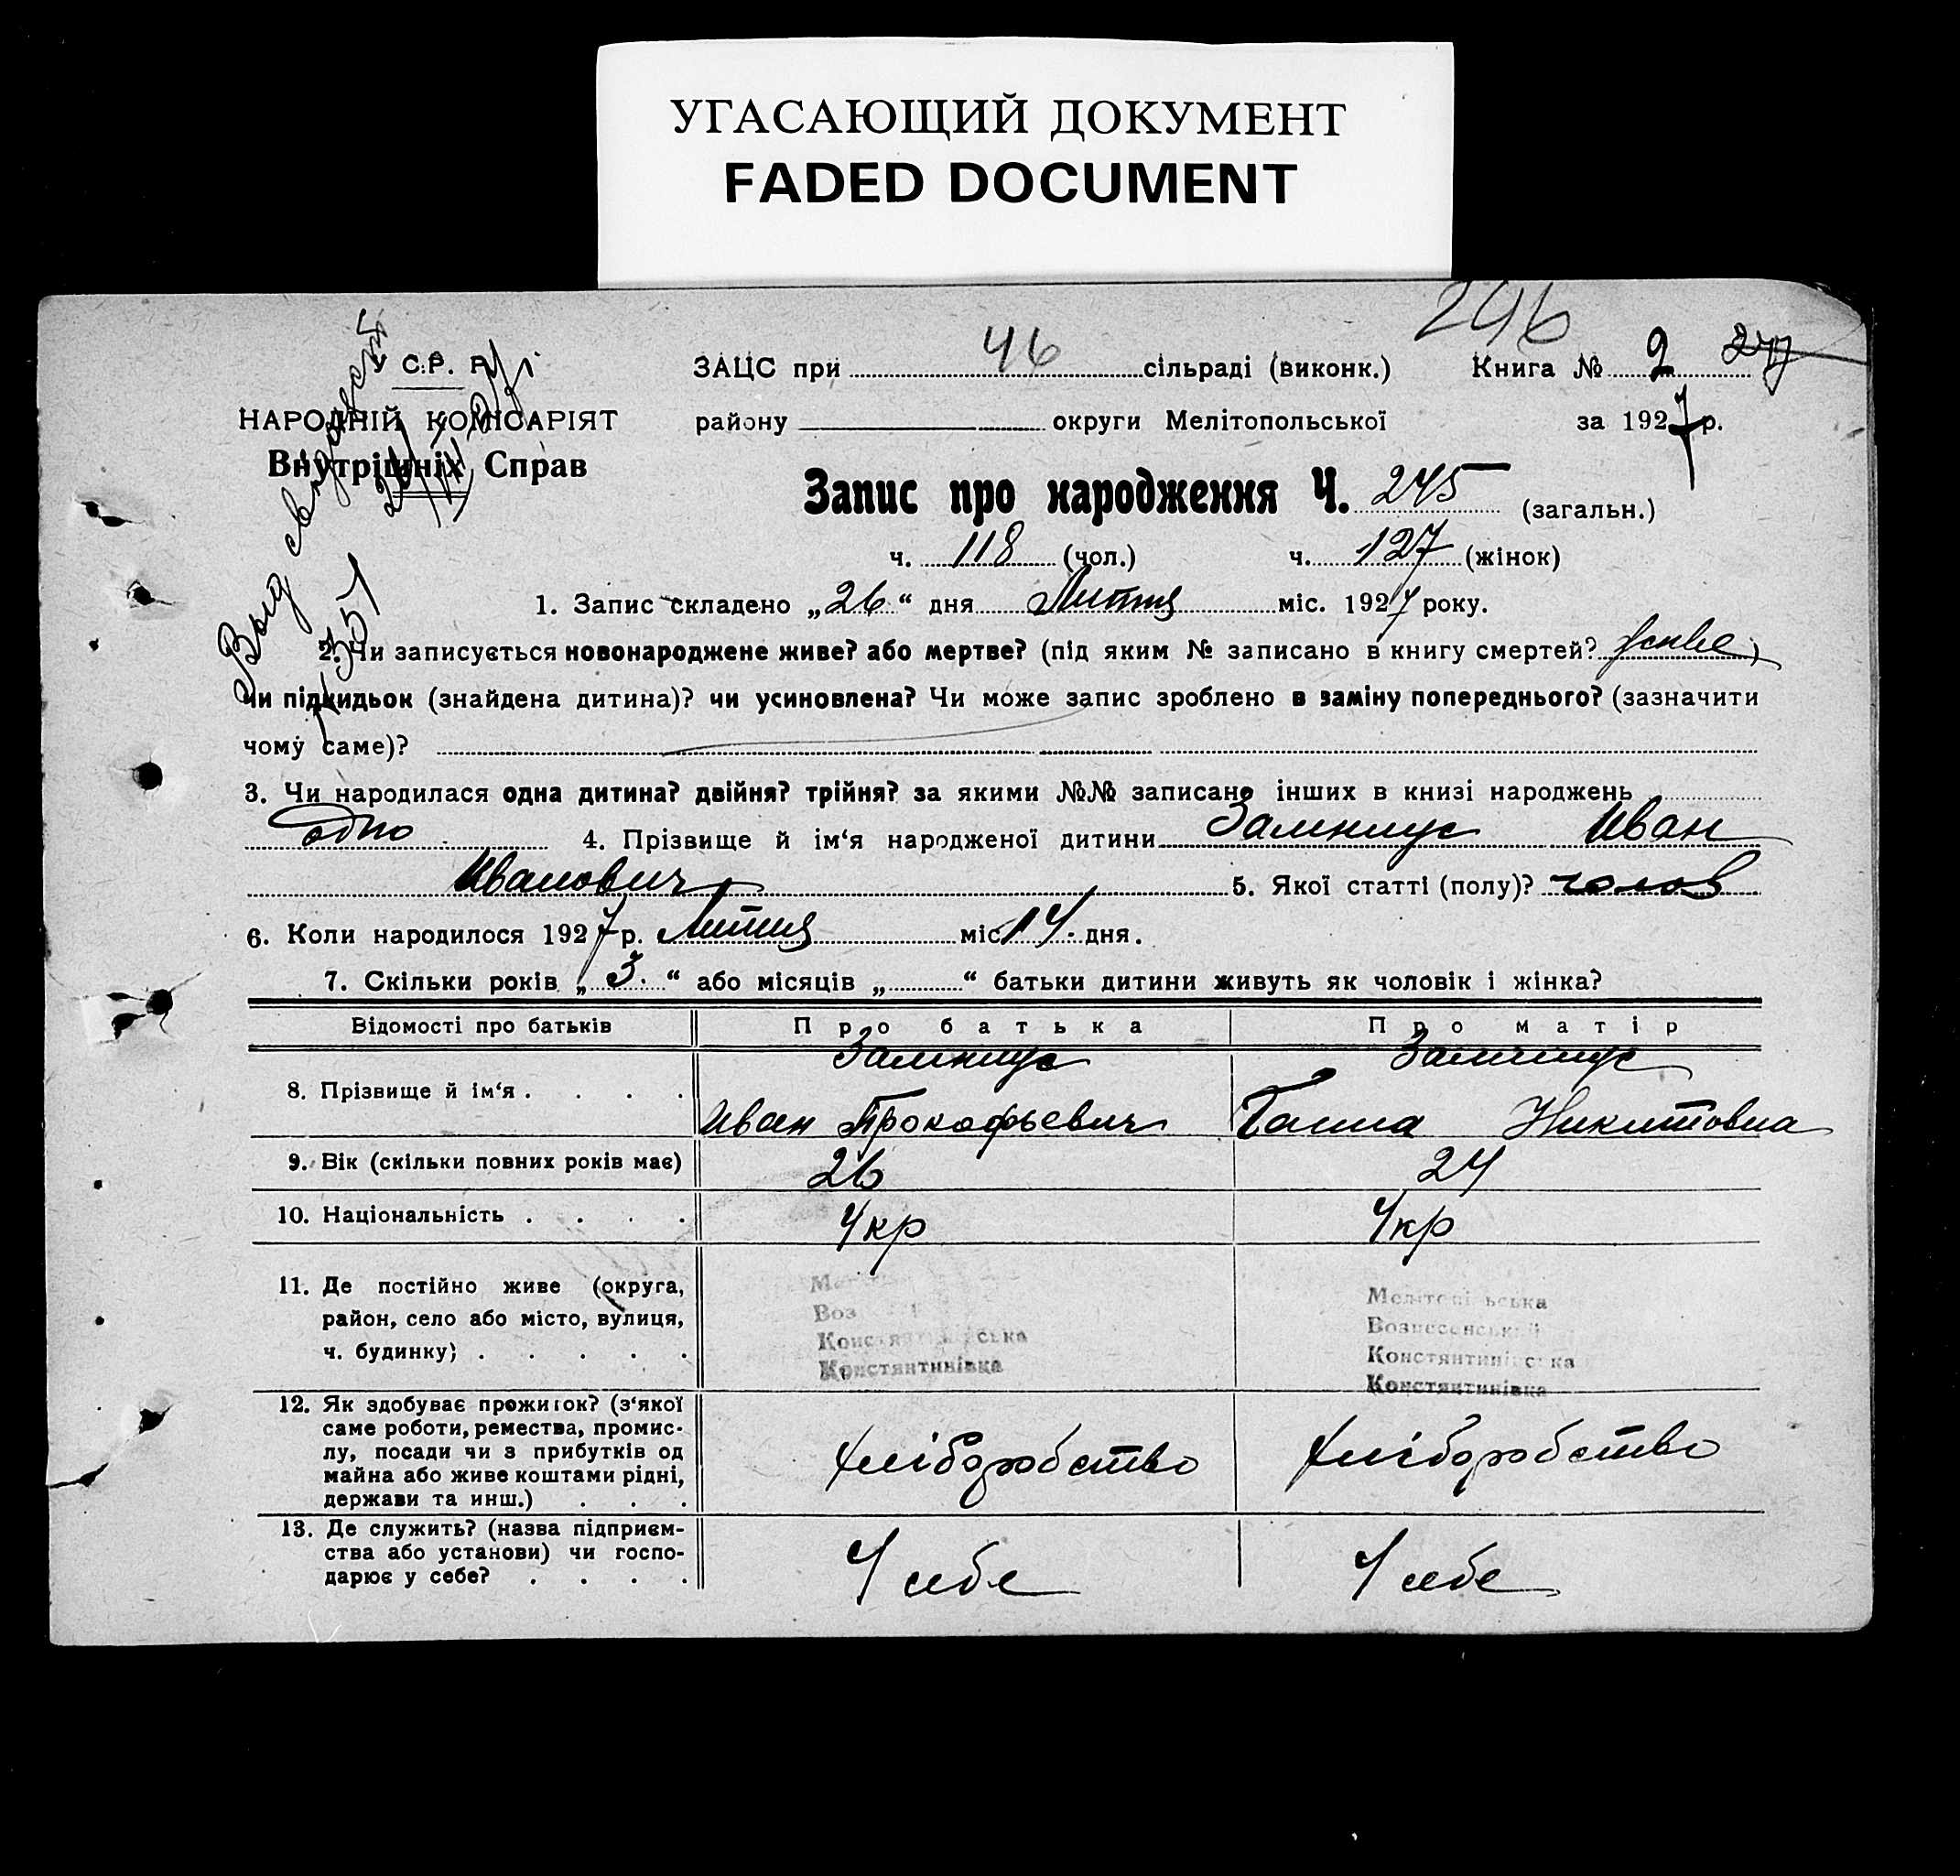 УГАСАЮЩИЙ ДОКУМЕНТ
FADED DOCUMENT
246
У С.Р. Р.
ЗАЦС при 46 сільраді (виконк.) Книга № 2
НАРОДНІЙ КОМІСАРІЯТ
району округи Мелітопольської за 1927 р.
Внутрішніх Справ
Запис про народження Ч. 245 (загальн.)
ч. 118 (чол.) ч. 127 (жінок)
1. Запис складено „26“ дня Липня міс. 1927 року.
2. Чи записується новонароджене живе? або мертве? (під яким № записано в книгу смертей?
чи підкидьок (знайдена дитина)? чи усиновлена? Чи може запис зроблено в заміну попереднього? (зазначити
чому саме)?
3. Чи народилася одна дитина? двійня? трійня? за якими №№ записано інших в книзі народжень
одно 4. Прізвище й ім‘я народженої дитини Иван
Иванович 5. Якої статті (полу)? чолов
6. Коли народилося 1927 р. Липня міс 14 дня.
7. Скільки років „3.“ або місяців „ “ батьки дитини живуть як чоловік і жінка?
Відомості про батьків Про батька Про матір
8. Прізвище й ім‘я . . . .
Иван Прокофьевич Ганна Никитовна
9. Вік (скільки повних років має) 26 24
10. Національність . . . . Укр Укр
11. Де постійно живе (округа,
район, село або місто, вулиця,
ч. будинку) . . . . .
Вознесенський
Констянтинівка Констянтинівка
12. Як здобуває прожиток? (з‘якої
саме роботи, ремества, промис-
лу, посади чи з прибутків од
майна або живе коштами рідні,
держави та инш.) . . .
хліборобство хліборобство
13. Де служить? (назва підприєм-
ства або установи) чи госпо-
дарює у себе? . . . .
У себе У себе